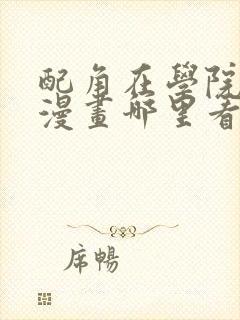 配角在學院
漫畫哪里看
席暢